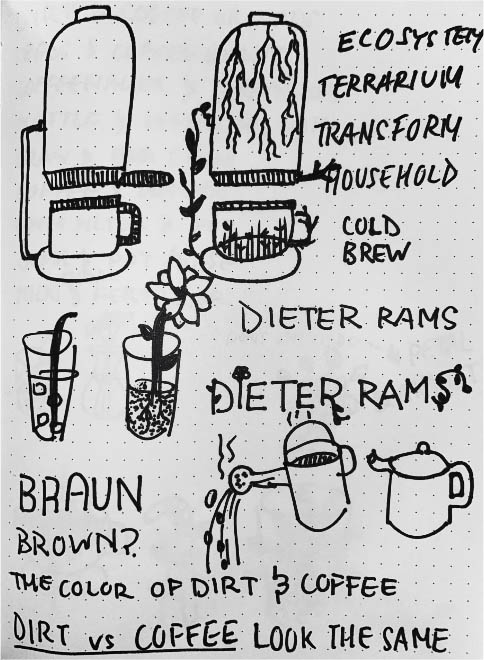 ECOSYSTEM
TERRARIUM
TRANSFORM
HOUSEHOLD
COLD
BREW
DIETER RAMS
DIETER RAMS
BRAUN
BROWN?
THE COLOR OF DIRT & COFFEE
DIRT vs COFFEE LOOK THE SAME